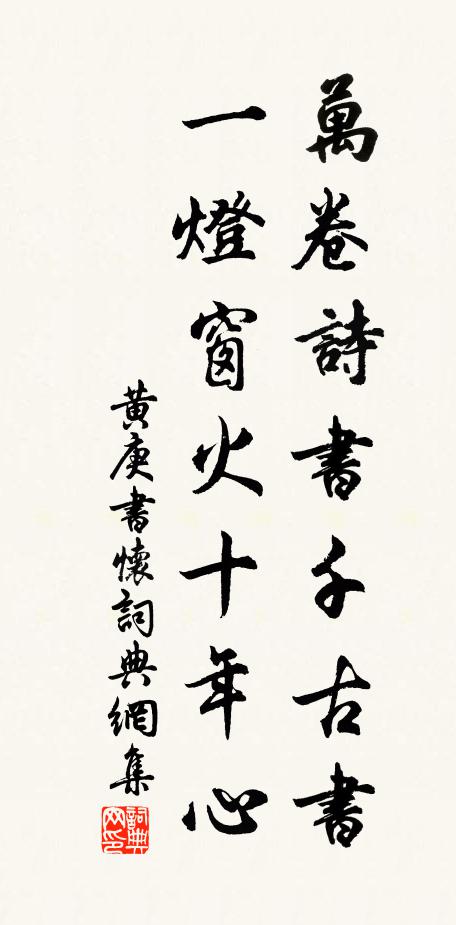 萬卷詩書千古書
一燈窗火十年心
黄庚書懷詞典網集
詞典网印